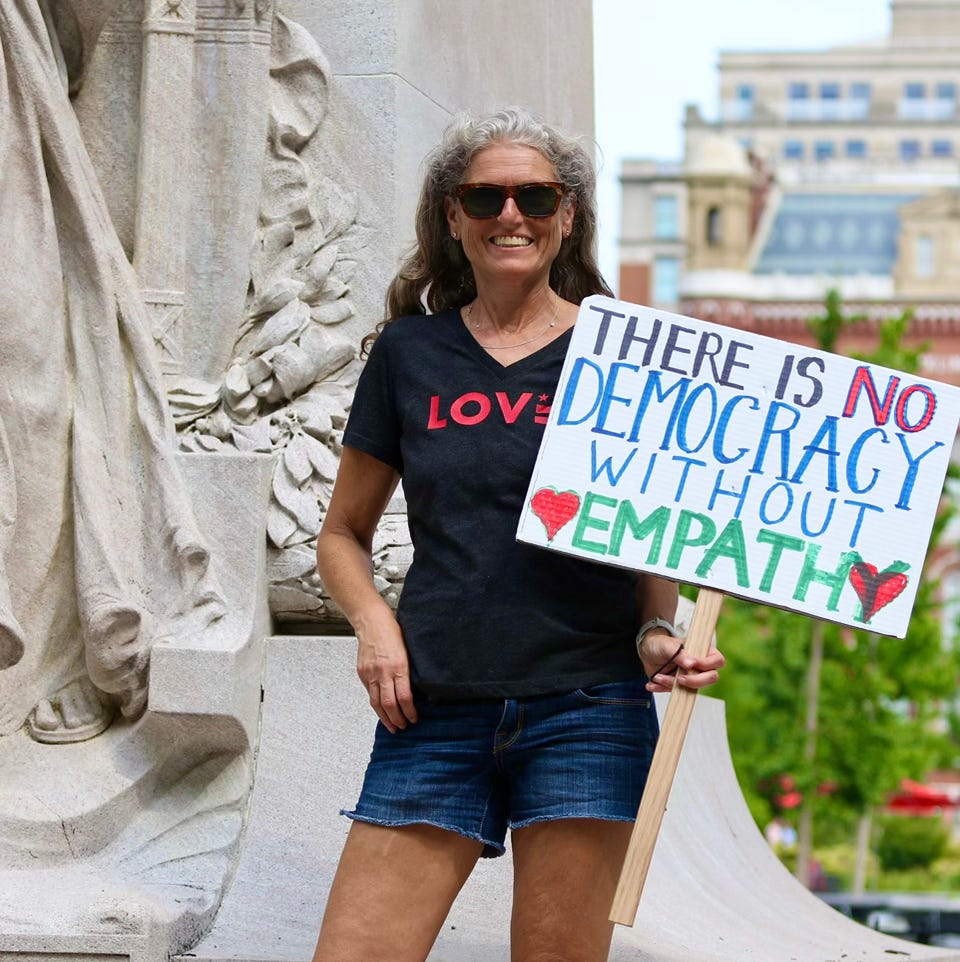 LOVE
THERE IS NO
DEMOCRACY
WITHOUT
EMPATHY